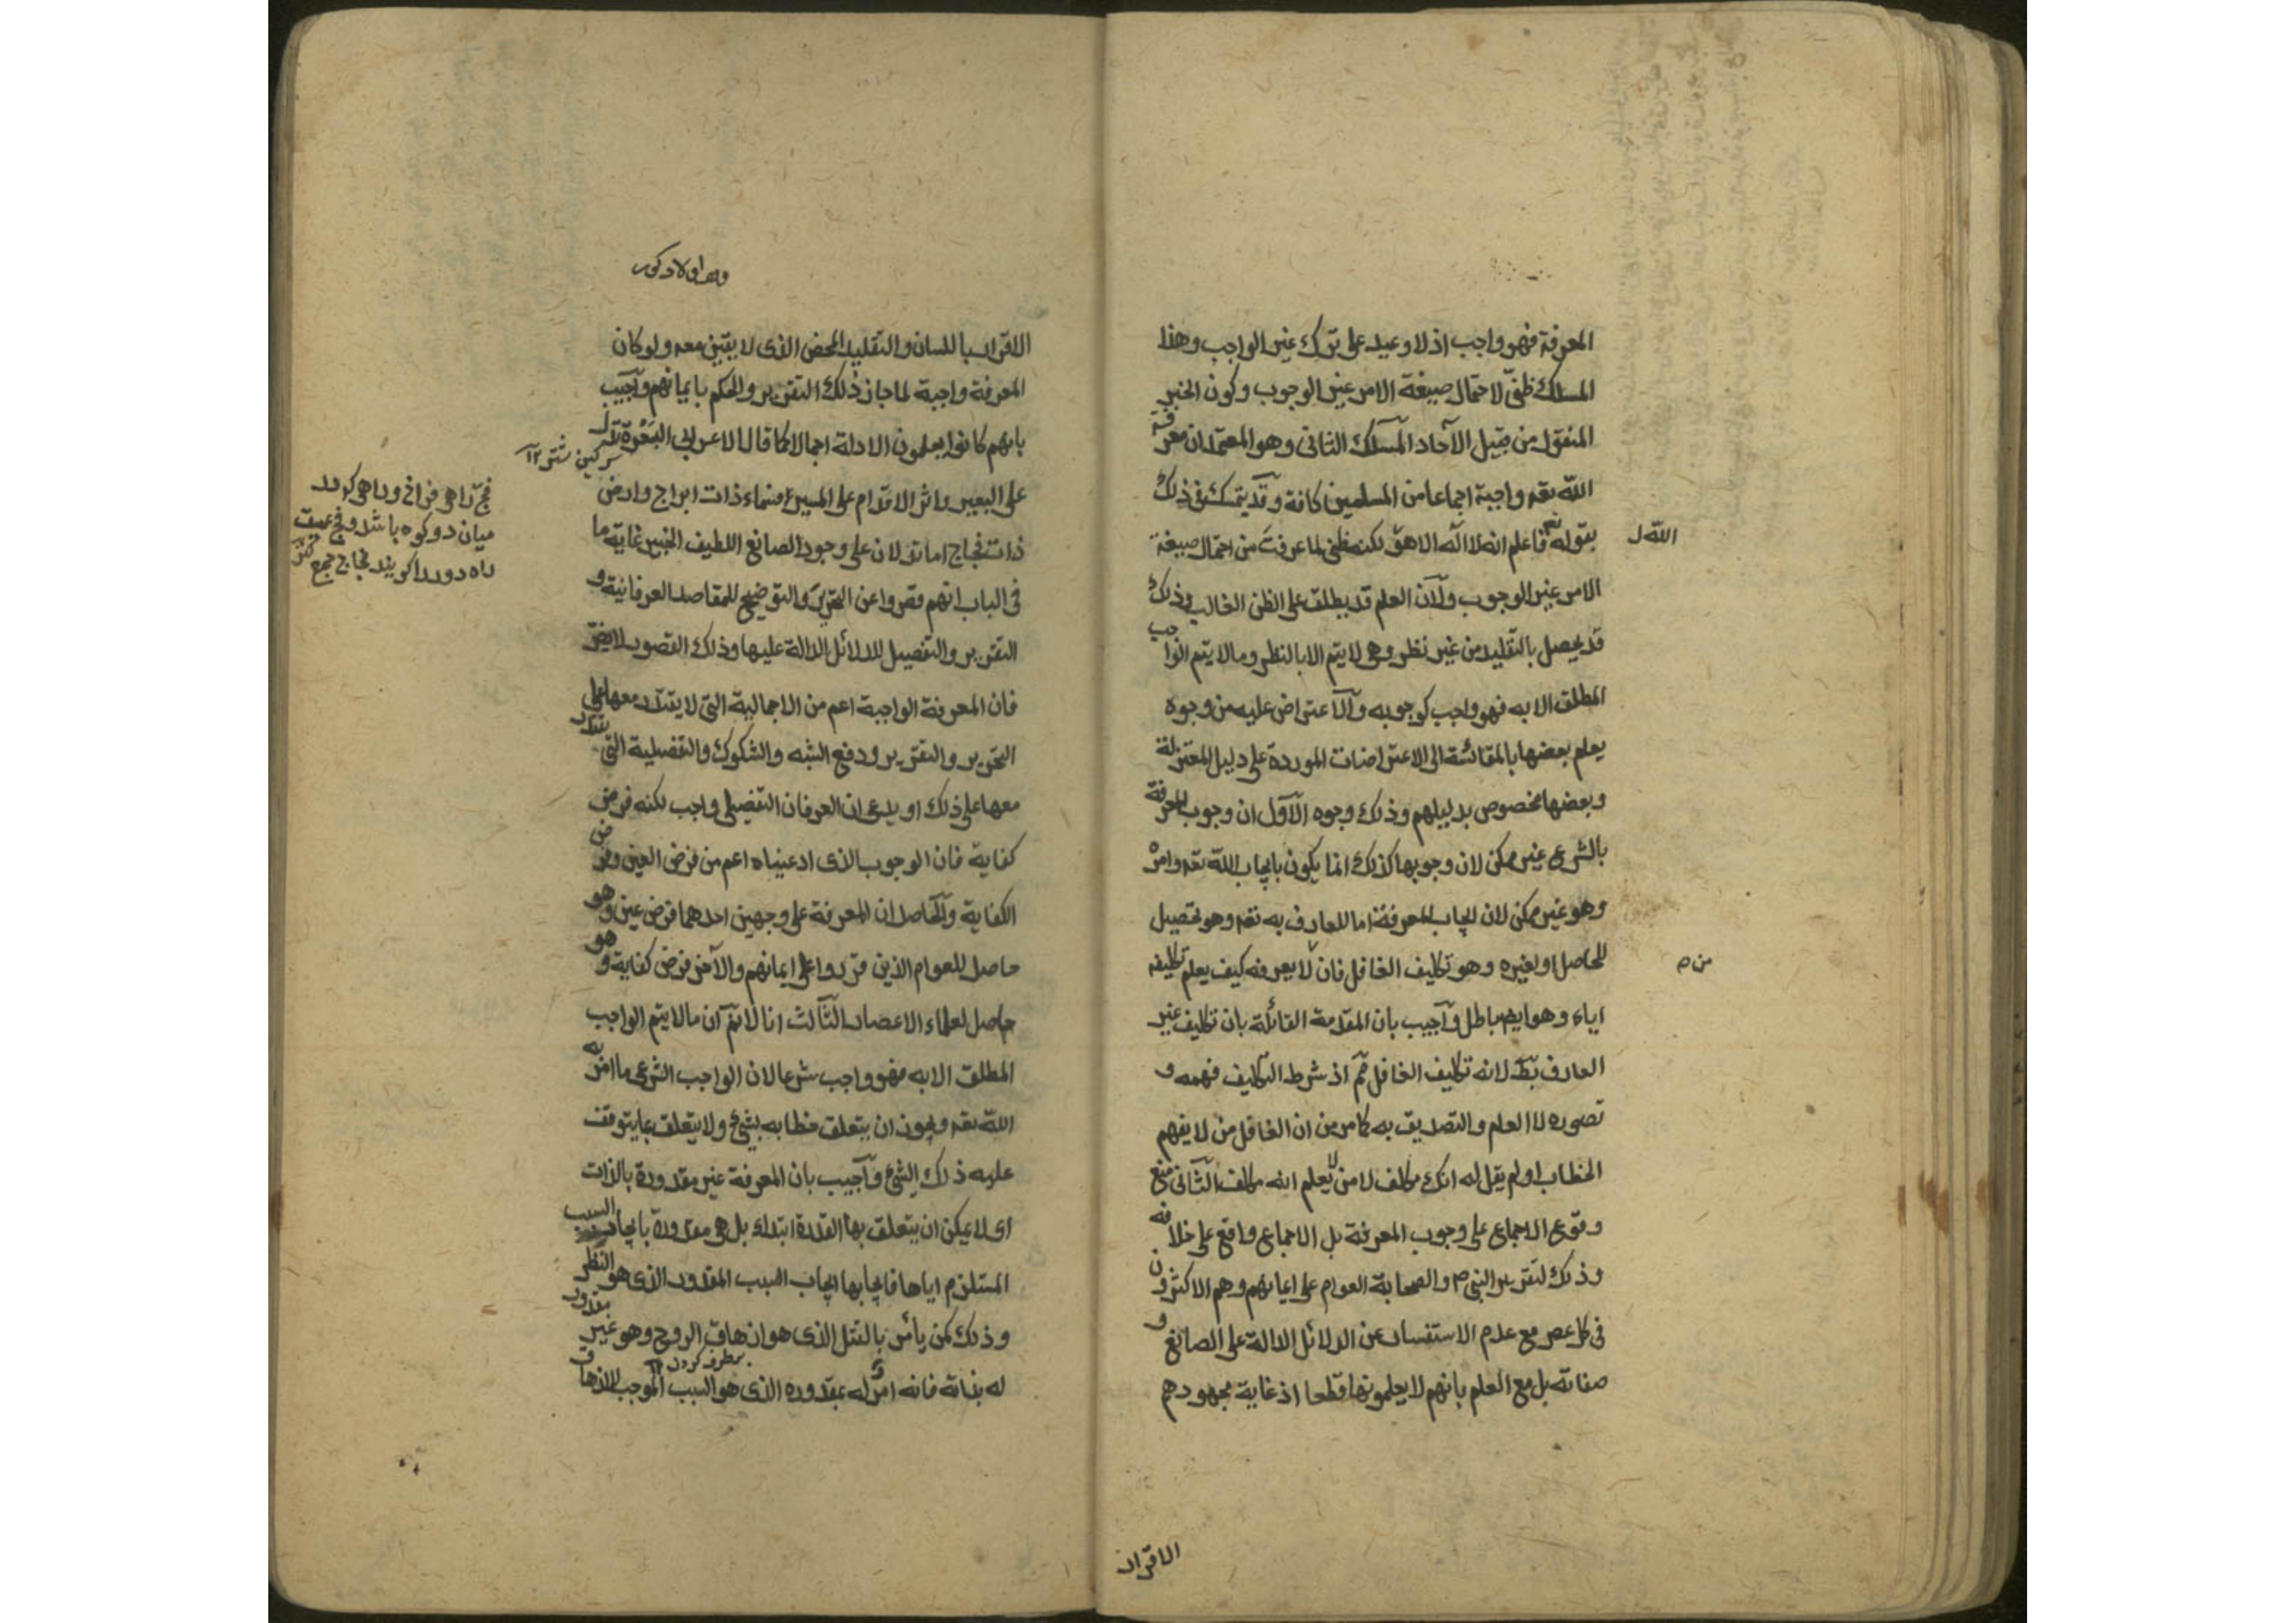 المعرفة فهو واجب اذ لا وعيد على ترك غير الواجب وهذا
المسلك ظنىّ لاحتمال صيغة الامر غير الوجوب وكون الخبر
المنقول من قبيل الآحاد المسلك الثانى وهو المعتمد ان معرفة
الله تعه واجبة اجماعا من المسلمين كافة وقد يتمسك فى ذلك
بقوله تع فاعلم انه لا اله الا هو لكنه ظنى لما عرفت من احتمال صيغة
الله ل
الامر غير الوجوب ولان العلم قد يطلق على الظن الغالب وذلك
قد يحصل بالتقليد من غير نظر وهى لا يتم الا بالنظر وما لا يتم الواجب
المطلق الا به فهو واجب كوجوبه والاعتراض عليه من وجوه
يعلم بعضها بالمقائسة الى الاعتراضات الموردة على دليل المعتزلة
وبعضها مخصوص بدليلهم وذلك وجوه الاول ان وجوب المعرفة
بالشرع غير ممكن لان وجوبها كذلك انما يكون بايجاب الله تعه وامره
وهو غير ممكن لان ايجاب المعرفة اما للعارف به تعه وهو تحصيل
للحاصل او لغيره وهو تكليف الغافل فان لا يعرفه كيف يعلم تكليفه
من م
اياه وهو ايض باطل واجيب بان المقدمة القائلة بان تكليف غير
العارف بط لانه تكليف الغافل مم اذ شرط التكليف فهمه و
تصوره لا العلم والتصديق به كما مر من ان الغافل من لا يفهم
الخطاب او لم يقل له انك مكلف لا من لا يعلم انه مكلف الثانى منع
وقوع الاجماع على وجوب المعرفة بل الاجماع واقع على خلافه
وذلك لتقرير النبى م والصحابة العوام على ايمانهم وهم الاكثرون
فى كل عصر مع عدم الاستفسار عن الدلائل الدالة على الصانع و
صفاته بل مع العلم بانهم لا يعلمونها قطعا اذ غاية مجهودهم
الاقرار
الاقرار باللسان والتقليد المحض الذى لا يقين معه ولو كان
المعرفة واجبة لما جاز ذلك التقرير والحكم بايمانهم واجيب
بانهم كانوا يعلمون الادلة اجمالا كما قال الاعرابى البَعْرَة تدل
سركين شتر ١٢
على البعير واثر الاقدام على المسير افسماء ذات ابراج وارض
ذات فجاج اما تدلان على وجود الصانع اللطيف الخبير غاية ما
فجّ راهى فراخ وراهى كه در
ميان دو كوه باشد وفج عميق
راه دور را كويند فجاج جمع
فى الباب انهم قصروا عن التحرير والتوضيح للمقاصد العرفانية و
التقرير والتفصيل للدلائل الدالة عليها وذلك القصور لا يضر
فان المعرفة الواجبة اعم من الاجمالية التى لا يقتدر معها على
التحرير والتقرير ودفع الشبه والشكوك والتفصيلية التى يقتدر
معها على ذلك او يدعى ان العرفان التفصيلى واجب لكنه فرض
كفاية فان الوجوب الذى ادعيناه اعم من فرض العين وفرض
الكفاية والحاصل ان المعرفة على وجهين احدهما فرض عين وهو
حاصل للعوام الذين قرروا على ايمانهم والآخر فرض كفاية وهو
حاصل لعلماء الاعصار الثالث انا لا نم ان ما لا يتم الواجب
المطلق الا به فهو واجب شرعا لان الواجب الشرعى ما امر به
الله تعه ويجوز ان يتعلق خطابه بشئ ولا يتعلق بما يتوقف
عليه ذلك الشئ واجيب بان المعرفة غير مقدورة بالذات
اى لا يمكن ان يتعلق بها القدرة ابتداء بل هى مقدورة بايجاب السبب
المستلزم اياها فايجابها ايجاب السبب المقدور الذى هو النظر
وذلك كمن يأمر بالقتل الذى هو ازهاق الروح وهو غير مقدور
برطرف كردن ١٢
له بذاته فانه امر له بمقدوره الذى هو السبب الموجب للازهاق